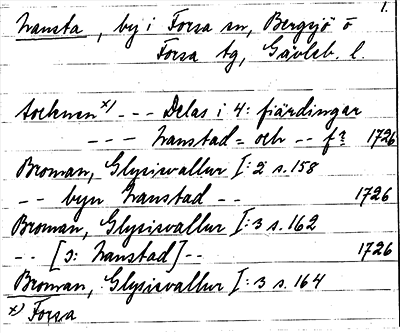 1.
Hansta, by i Forsa sn, Bergsjö o
Forsa tg, Gävleb. l.
Sochnen x) --- Delas i 4: fiärdingar
--- Hanstad= och -- f? 1726
Broman, Glysisvallur I:2 s.158
-- byn Hanstad -- 1726
Broman, Glysisvallur I:3 s.162
-- [ɔ: Hanstad] -- 1726
Broman, Glysisvallur I:3 s.164
x) Forsa